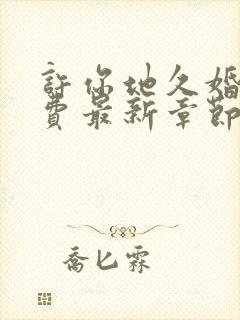 許你地久婚
費最新章節
喬匕霖